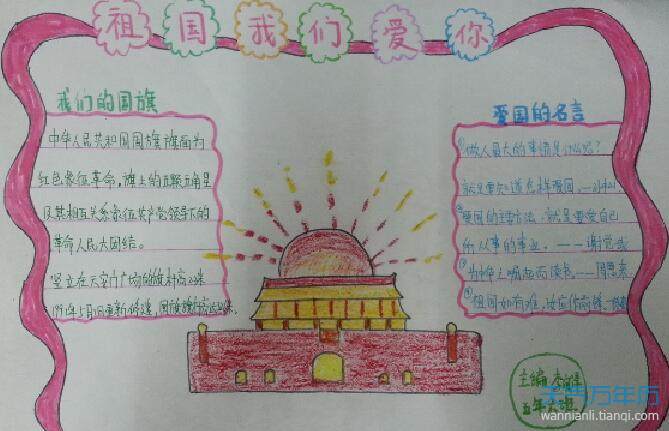 祖国我们爱你
我们的国旗
中华人民共和国国旗旗面为
红色象征革命,旗上的五颗五角星
及其相互关系象征共产党领导下的
革命人民大团结。
竖立在天安门广场的旗杆高
爱国的名言
①做人最大的事情是什么呢?
就是要知道怎样爱国
②爱国的主要方法,就是要爱自己
所从事的事业。——谢觉哉
③为中华之崛起而读书
④祖国如有难,汝应作前锋。
主编
五年
天气万年历
wannianli.tianqi.com